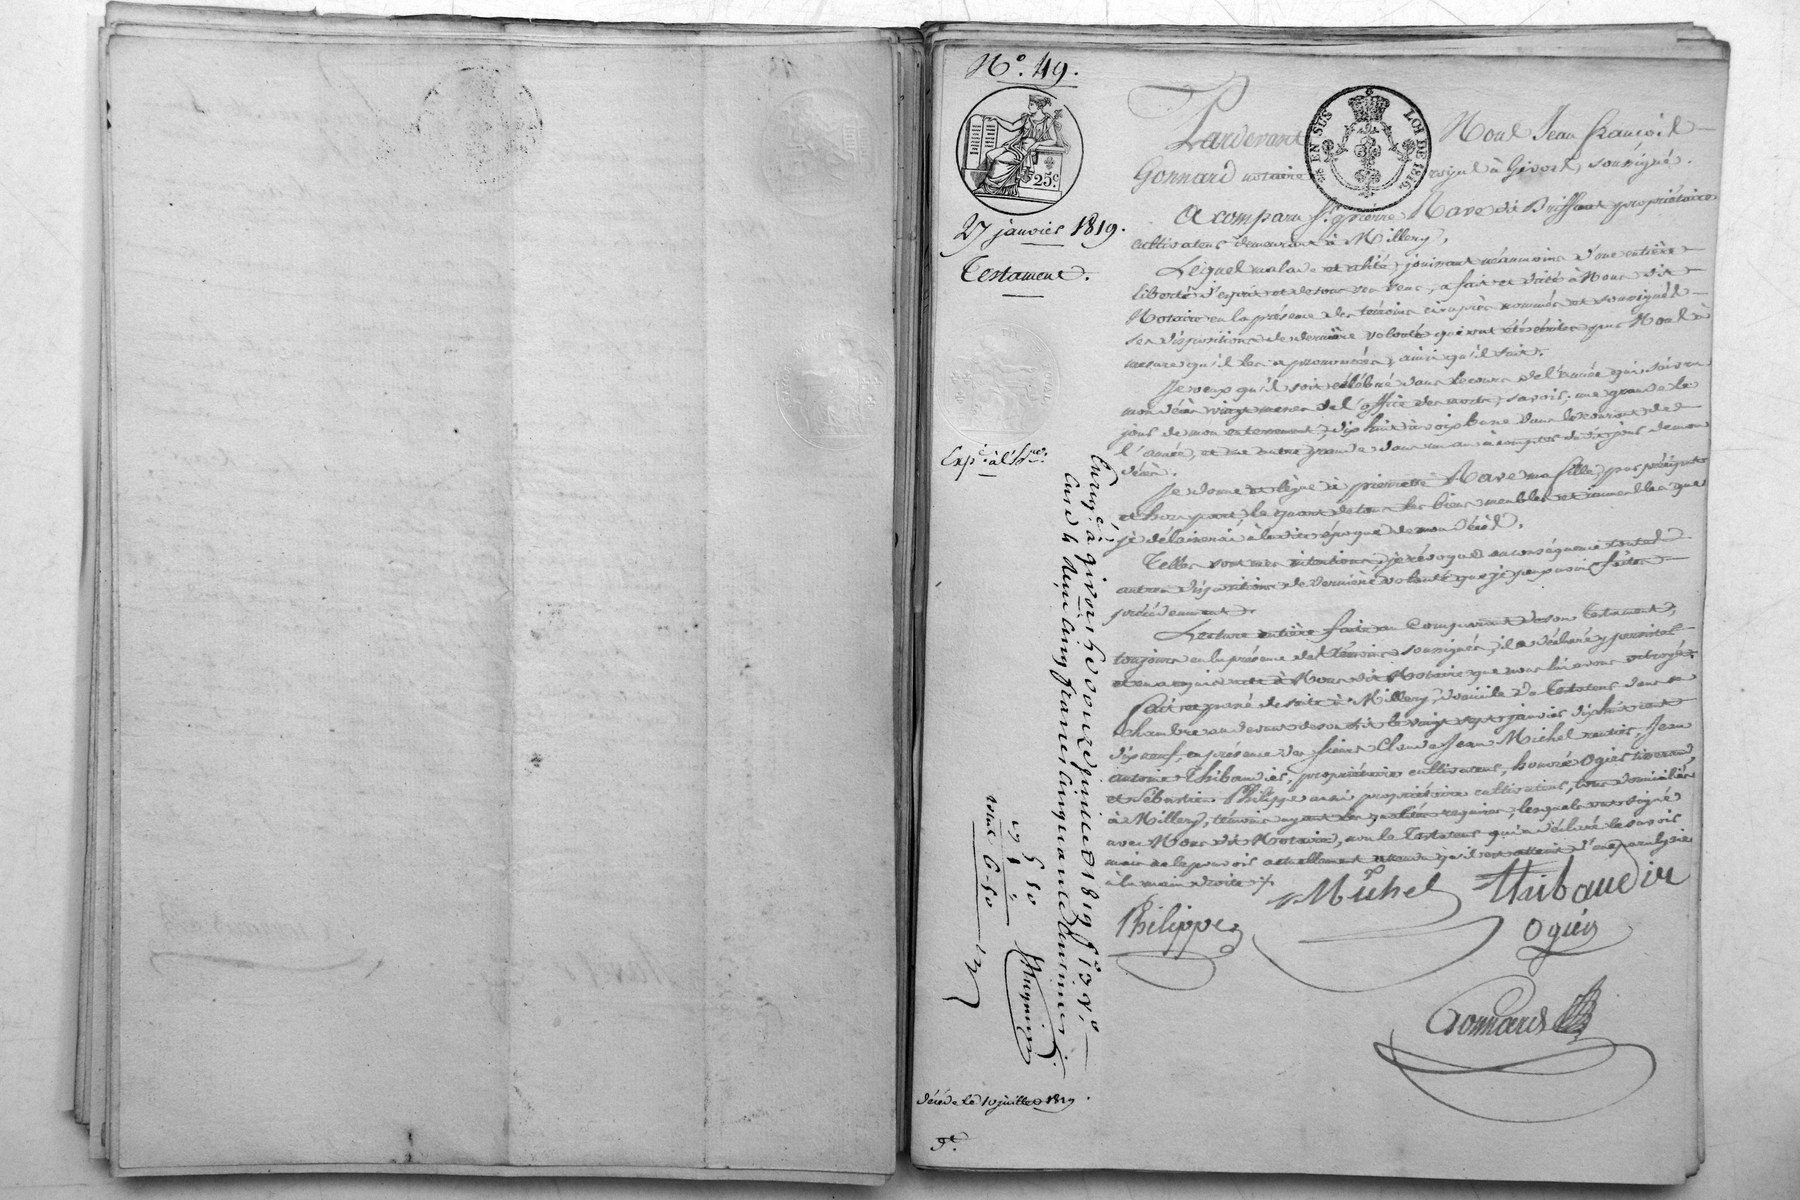 N.° 49.
25.c
27 janvier 1819.
Testament.
Exp.e à l'h.er
EN SUS LOI DE 1816.
Pardevant Nous Jean françois
Gonnard notaire royal à Givors, soussigné.
A comparu S.r pierre Rave dit Briffaut propriétaire
cultivateur demeurant à Millery,
Lequel malade et alité, jouissant néanmoins d'une entière
liberté d'esprit et de tous ses sens, a fait et dicté à Nous dit
Notaire en la présence des témoins ci après nommés et soussignés
ses dispositions de dernière volonté qui ont été écrites par Nous à
mesure qu'il les a prononcées, ainsi qu'il suit.
Je veux qu'il soit célébré dans le cours de l'année qui suivra
mon décès vingt messes de l'office des morts, savoir; une grande le
jour de mon enterrement, dix huit à voix basse dans le courant de
l'année, et une autre grande dans un an à compter du dit jour de mon
décès.
Je donne et lègue à pierrette Rave ma fille, par préciput
et hors part, le quart de tous les biens meubles et immeubles que
je délaisserai à la dite époque de mon décès.
Telles sont mes intentions, je révoque en conséquence toutes
autres dispositions de dernière volonté que je peux avoir faites
précédemment.
Lecture entière faite au Comparant de son Testament,
toujours en la présence des témoins soussignés, il a déclaré y persister
et en a requis acte à Nous dit Notaire que nous lui avons octroyé.
Fait et passé de suite à Millery, domicile du Testateur dans sa
chambre au devant de son lit le vingt sept janvier dix huit cent
dix neuf, en présence des sieurs Claude Jean Michel rentier, Jean
antoine Thibaudier, propriétaire cultivateur, honoré Ogier tisserand
et Sébastien Philippe aussi propriétaire cultivateur, tous domiciliés
à Millery, témoins ayant les qualités requises, lesquels ont signé
avec Nous dit Notaire, non le Testateur qui a déclaré le savoir
mais ne le pouvoir actuellement attendu qu'il est atteint d'une paralysie
à la main droite ./.
Michel Thibaudier
Philippe Ogier
Gonnard
Enreg.é à givors le douze juillet 1819 f.o 13 v.o
Case 4 reçu cinq francs cinquante centimes
5 50
6-50
décédé le 10 juillet 1819.